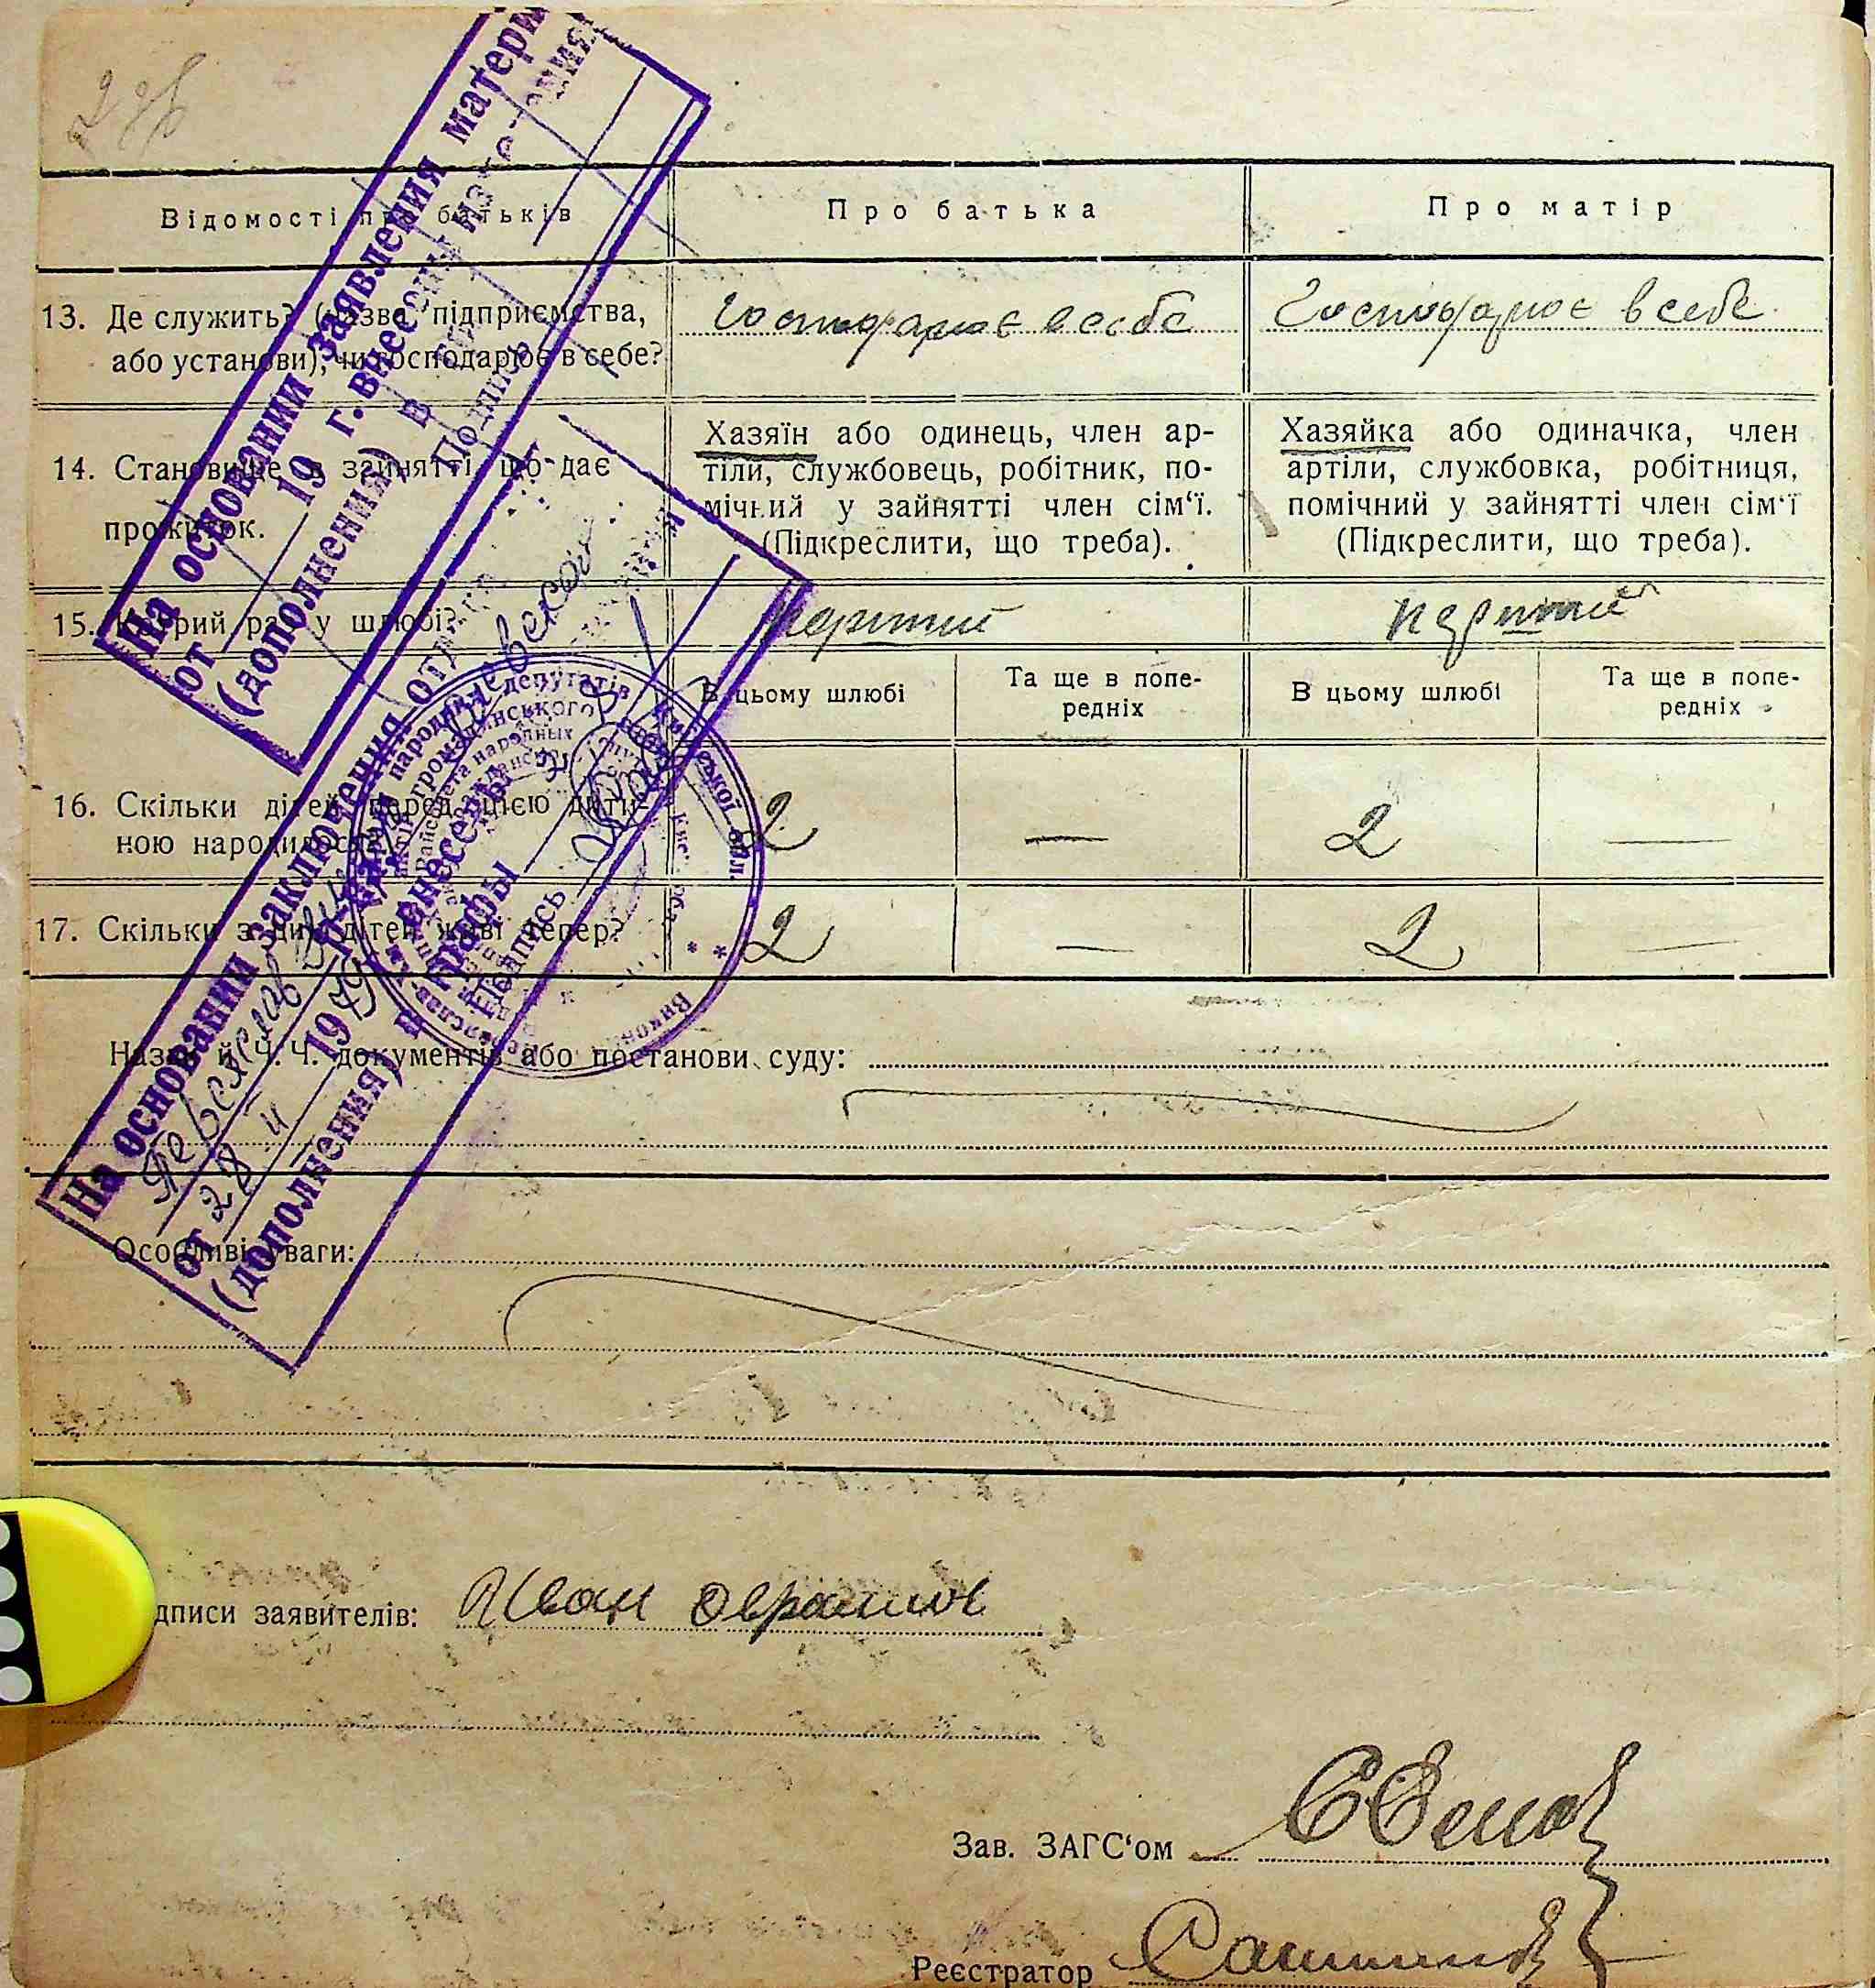 Відомості про батьків
Про батька
Про матір
13. Де служить? (назва підприємства,
або установи), чи господарює в себе?
Господарює в себе
Господарює в себе
14. Становище в зайнятті, що дає
прожиток.
Хазяїн або одинець, член ар-
тіли, службовець, робітник, по-
мічний у зайнятті член сім‘ї.
(Підкреслити, що треба).
Хазяйка або одиначка, член
артіли, службовка, робітниця,
помічний у зайнятті член сім‘ї
(Підкреслити, що треба).
15. Котрий раз у шлюбі?
перший
перший
В цьому шлюбі
Та ще в попе-
редніх
В цьому шлюбі
Та ще в попе-
редніх
16. Скільки дітей перед цією дити-
ною народилося?
2 — 2 —
17. Скільки з них дітей живі тепер?
2 — 2 —
Назва й Ч.Ч. документів або постанови суду:
Особливі уваги:
дписи заявителів: Иван
Зав. ЗАГС‘ом
Реєстратор
На основании заявления матери
от 19 г. внесены
(дополнения) в
Подпись
На основании заключения
от 28 II 1979 г. внесены
(дополнения) в графы
Подпись